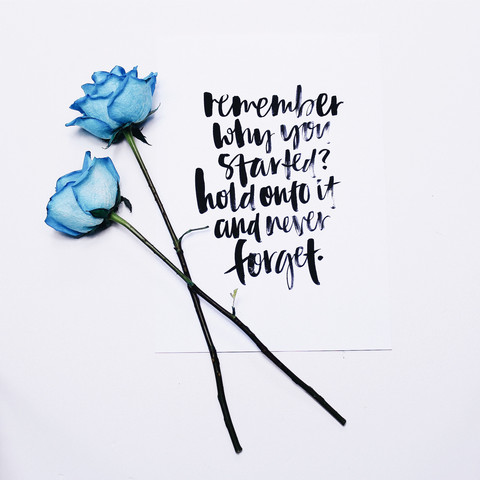 remember
why you
started?
hold onto it
and never
forget.